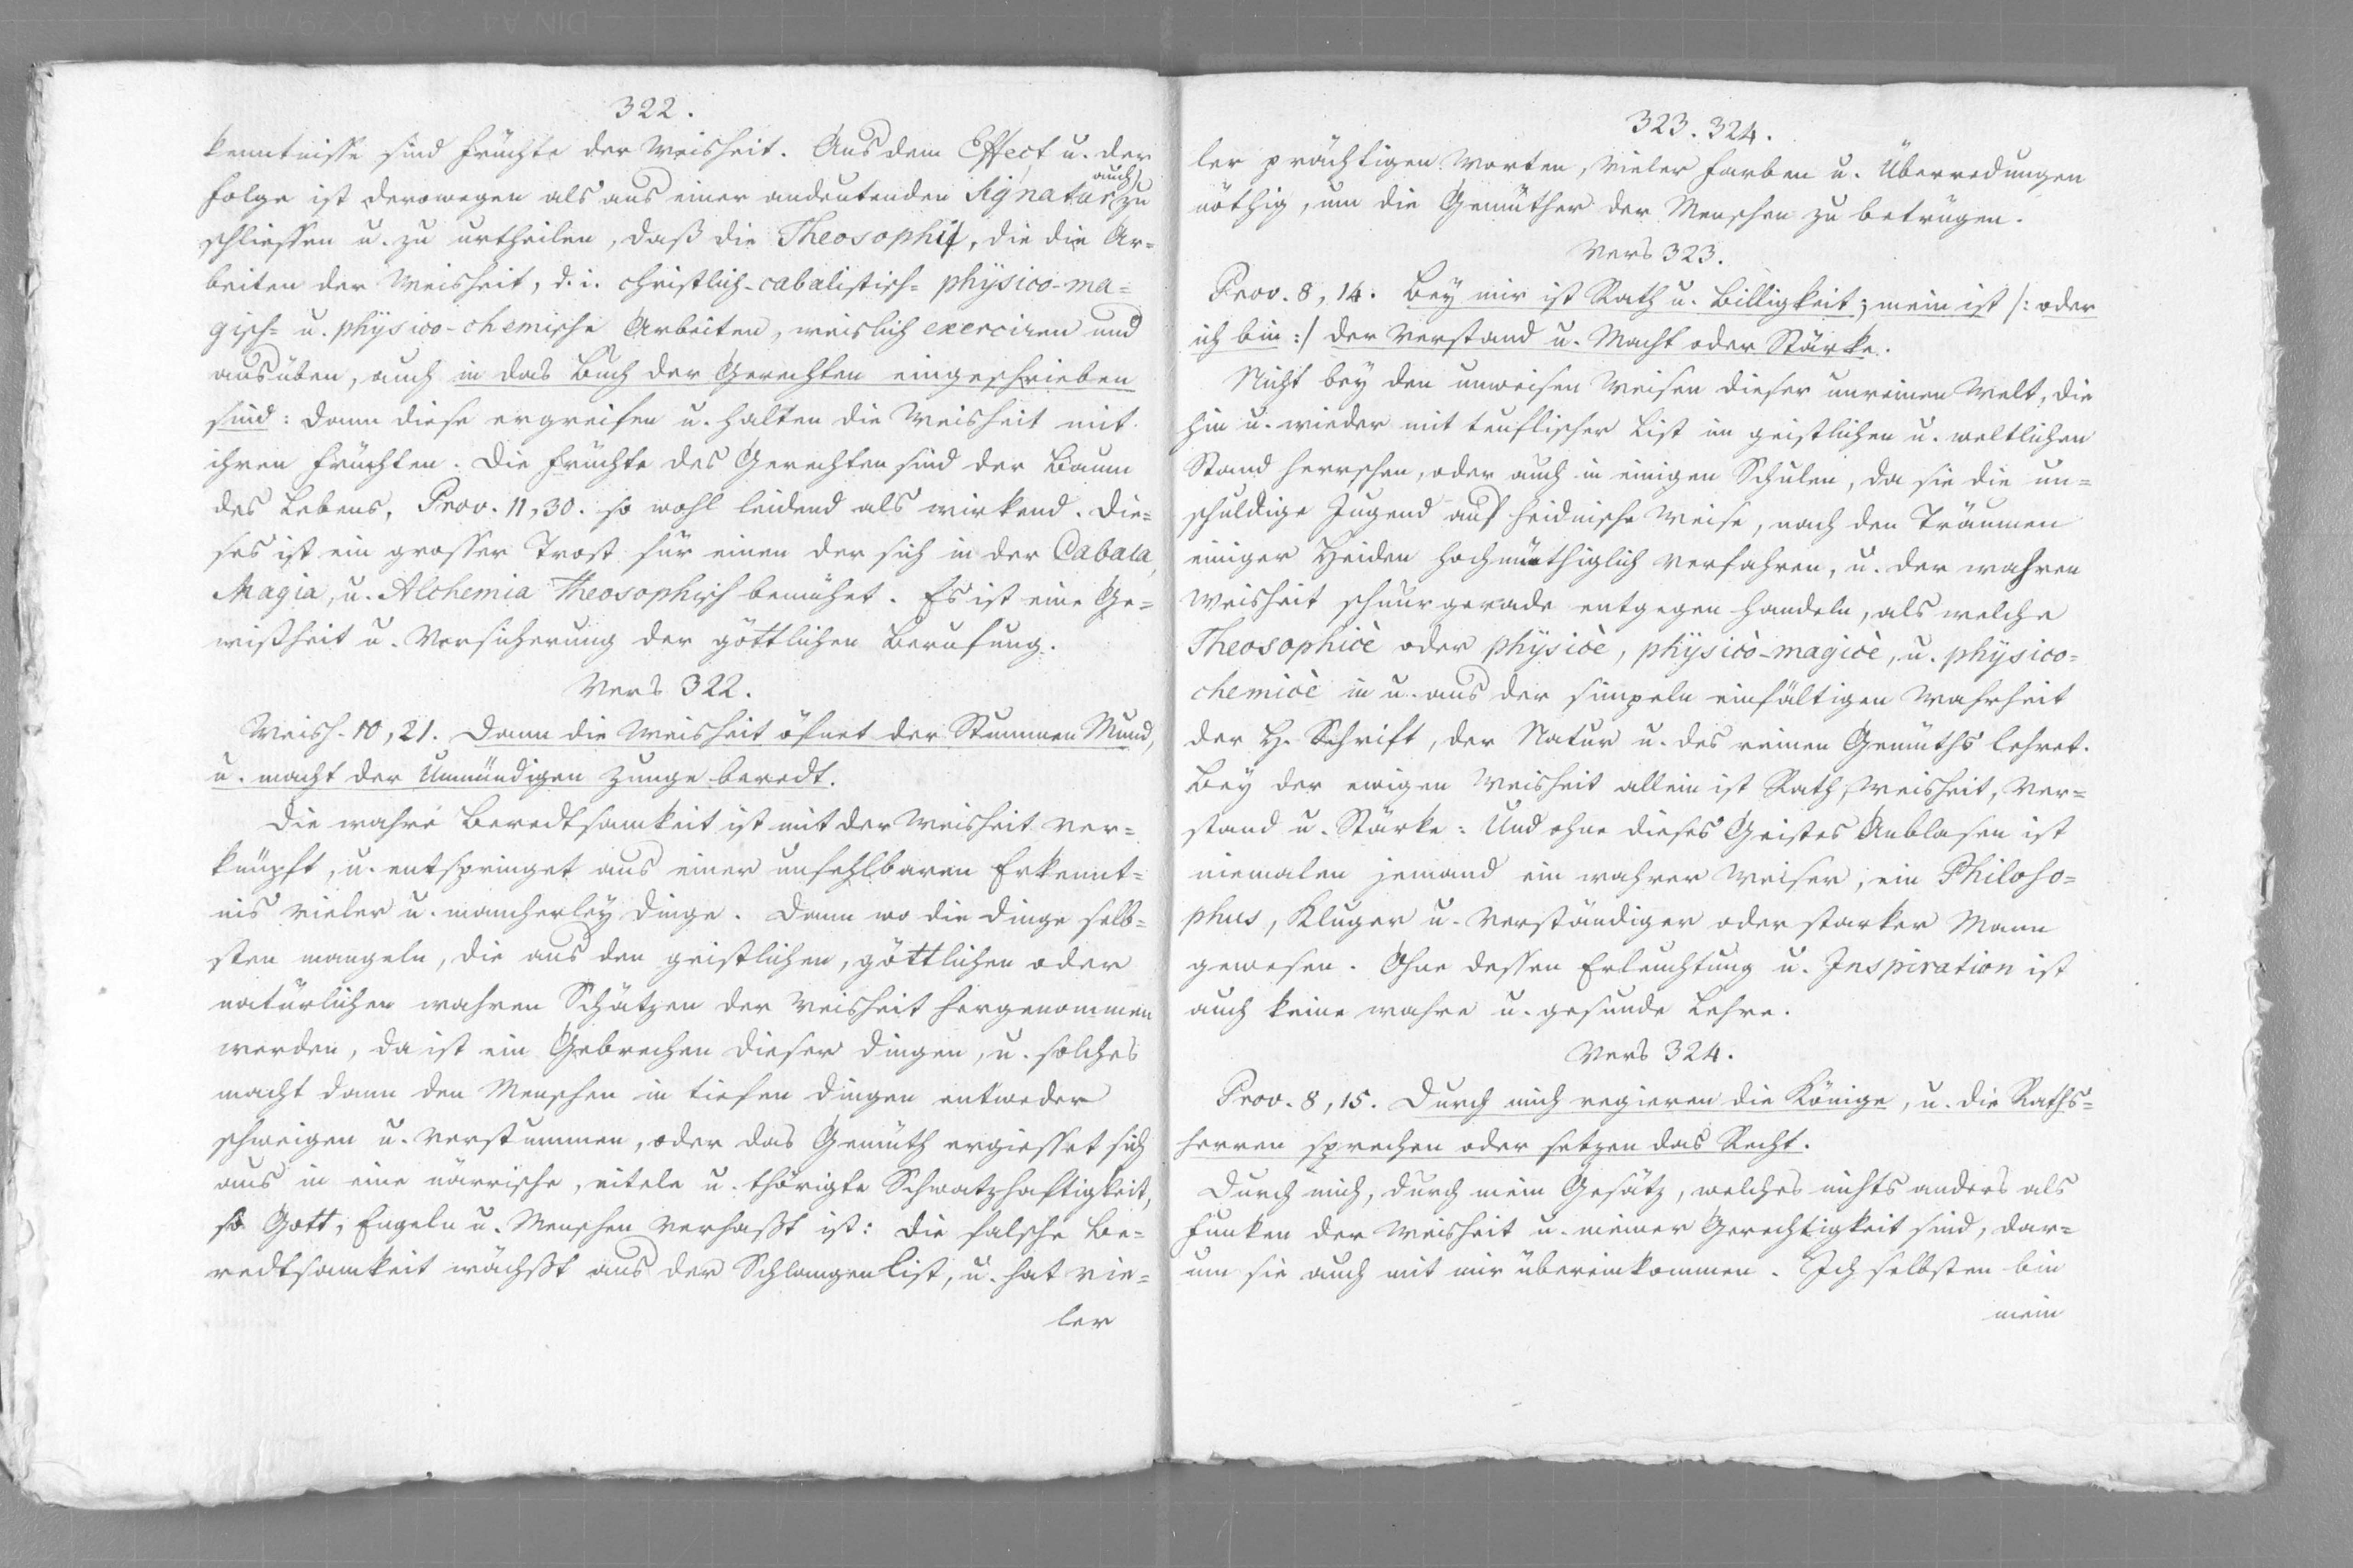 322.
kenntnisse sind Früchte der Weisheit. Aus dem Effect u. der
Folge ist derowegen als aus einer andeutenden Signatur auch zu
schliessen u. zu urtheilen, daß die Theosophi, die die Ar=
beiten der Weisheit, d. i. christlich-cabalistisch= physico-ma=
gisch= u. physico-chemische Arbeiten, weislich exerciren und
ausüben, auch in das Buch der Gerechten eingeschrieben
sind: Dann diese ergreifen u. halten die Weisheit mit
ihren Früchten. Die Früchte des Gerechten sind der Baum
des Lebens, Prov. 11, 30. so wohl leidend als wirkend. Die=
ses ist ein grosser Trost für einen der sich in der Cabala,
Magia, u. Alchemia Theosophisch bemühet. Es ist eine Ge=
wißheit u. Versicherung der göttlichen Berufung.
Vers 322.
Weish. 10, 21. Dann die Weisheit öfnet der Stummen Mund,
u. macht der Unmündigen Zunge beredt.
Die wahre Beredtsamkeit ist mit der Weisheit ver=
knüpft, u. entspringet aus einer unfehlbaren Erkennt=
nis vieler u. mancherley Dinge. Denn wo die Dinge selb=
sten mangeln, die aus den geistlichen, göttlichen oder
natürlichen wahren Schätzen der Weisheit hergenommen
werden, da ist ein Gebrechen dieser Dingen, u. solches
macht dann den Menschen in tiefen Dingen entweder
schweigen u. verstummen, oder das Gemüth ergiesset sich
aus in eine närrische, eitele u. thörigte Schwatzhaftigkeit,
so Gott, Engeln u. Menschen verhaßt ist: Die falsche Be=
redtsamkeit wächßt aus der Schlangen List, u. hat vie=
ler
323. 324.
ler prächtigen Worten, vieler Farben u. Überredungen
nöthig, um die Gemüther der Menschen zu betrügen.
Vers 323.
Prov. 8, 14. Bey mir ist Rath u. Billigkeit; mein ist /: oder
ich bin :/ der Verstand u. Macht oder Stärke.
Nicht bey den unweisen Weisen dieser unreinen Welt, die
hin u. wieder mit teuflischer List im geistlichen u. weltlichen
Stand herrschen, oder auch in einigen Schulen, da sie die un=
schuldige Jugend auf heidnische Weise, nach den Träumen
einiger Heiden hochmüthiglich verfahren, u. der wahren
Weisheit schnurgerade entgegen handeln, als welche
Theosophicè oder physicè, physicò-magicè, u. physico=
chemicè in u. aus der simpeln einfältigen Wahrheit
der H. Schrift, der Natur u. des reinen Gemüths lehret.
Bey der ewigen Weisheit allein ist Rath, Weisheit, Ver=
stand u. Stärke: Und ohne dieses Geistes Anblasen ist
niemalen jemand ein wahrer Weiser, ein Philoso=
phus, Kluger u. Verständiger oder starker Mann
gewesen. Ohne dessen Erleuchtung u. Inspiration ist
auch keine wahre u. gesunde Lehre.
Vers 324.
Prov. 8, 15. Durch mich regieren die Könige, u. die Raths=
herren sprechen oder setzen das Recht.
Durch mich, durch mein Gesätz, welches nichts anders als
Funken der Weisheit u. meiner Gerechtigkeit sind, dar=
um sie auch mit mir übereinkommen. Ich selbsten bin
mein